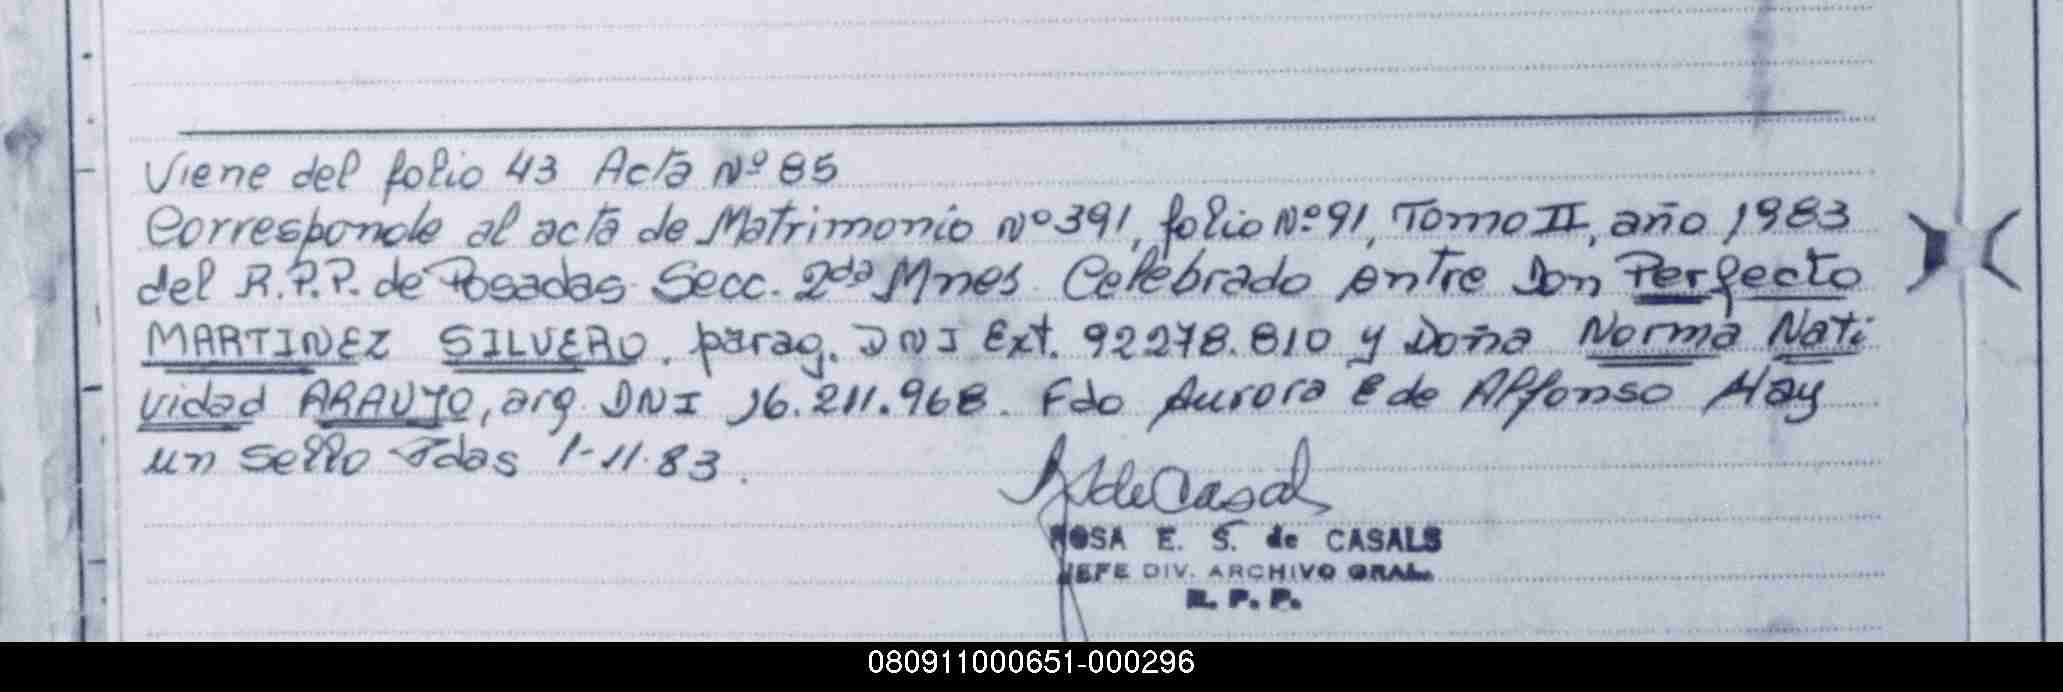 Viene del folio 43 Acta Nº 85
Corresponde al acta de Matrimonio Nº 391, folio Nº 91, Tomo II, año 1983
del R.P.P. de Posadas Secc. 2da Mnes. Celebrado entre Don Perfecto
MARTINEZ SILVERO, parag. DNI Ext. 92278.810 y Doña Norma Nati
vidad ARAUJO, arg. DNI 16.211.968. Fdo Aurora E de Alfonso Hay
un sello Pdas 1-11-83.
de Casals
ROSA E. S. de CASALS
JEFE DIV. ARCHIVO GRAL.
R. P. P.
080911000651-000296